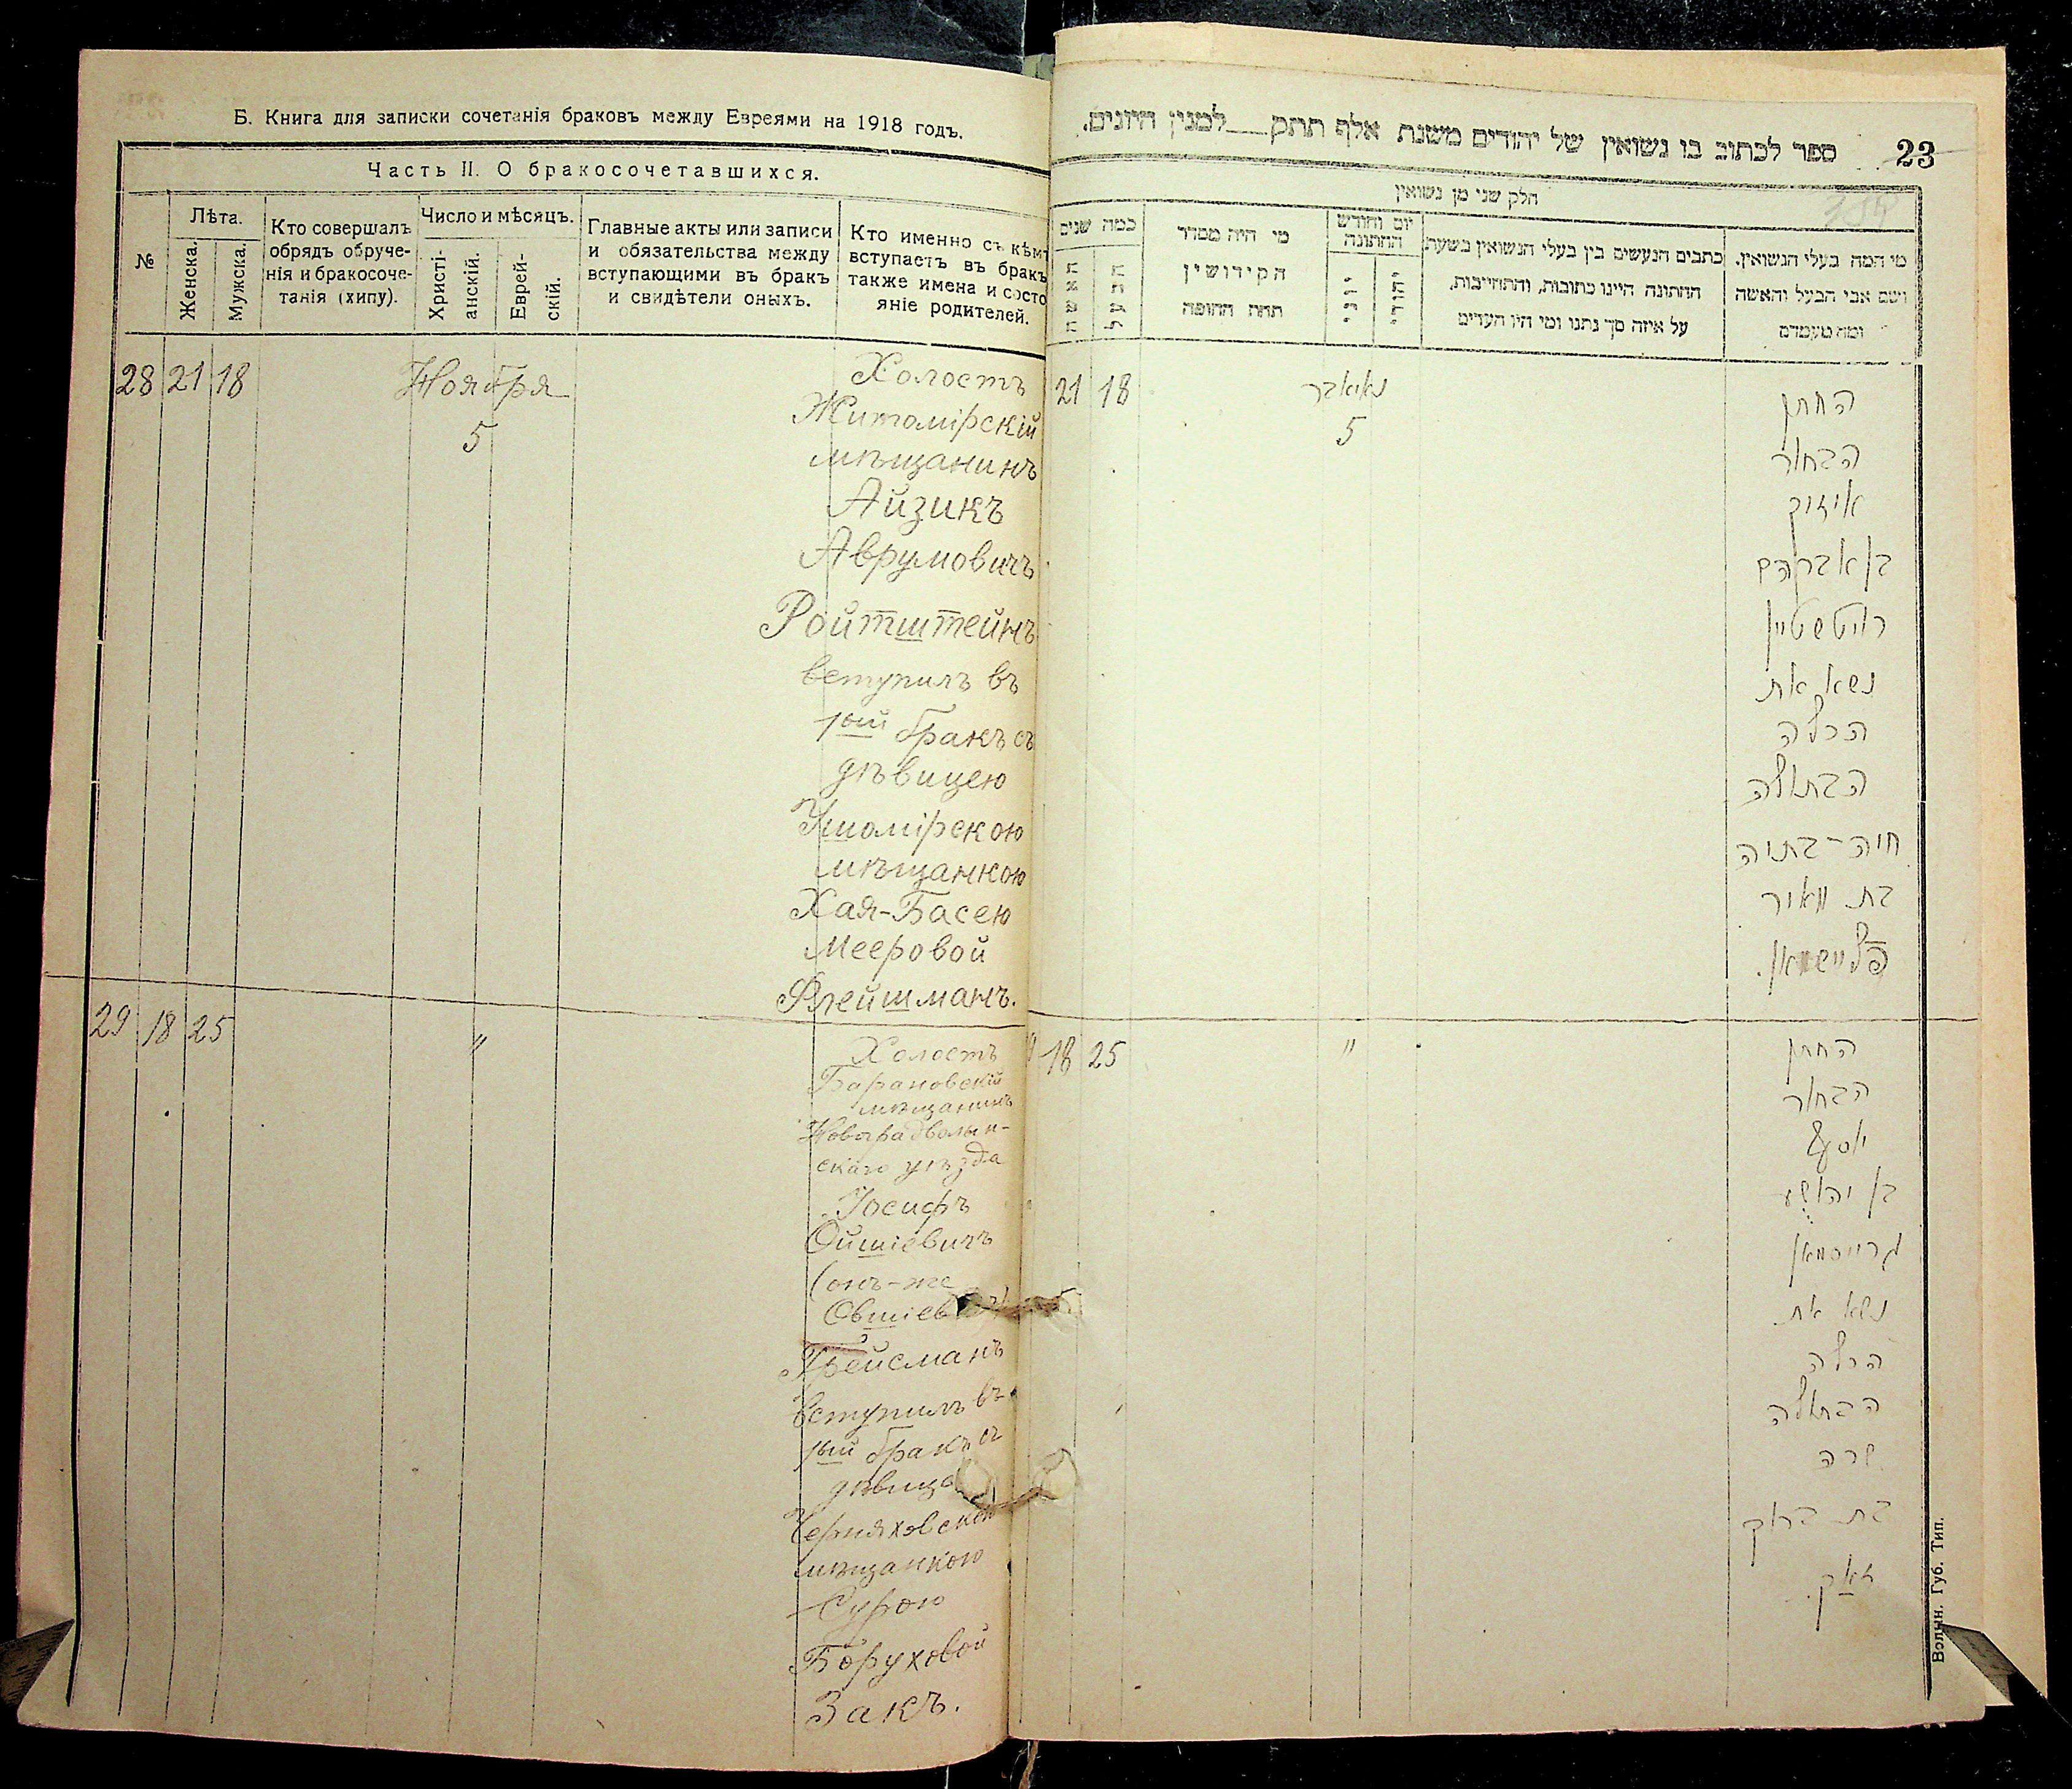 Б. Книга для записки сочетанія браковъ между Евреями на 1918 годъ.
Часть II. О бракосочетавшихся.
№
Лѣта.
Женска.
Мужска.
Кто совершалъ
обрядъ обруче-
нія и бракосоче-
танія (хипу).
Число и мѣсяцъ.
Христі-
анскій.
Еврей-
скій.
Главные акты или записи
и обязательства между
вступающими въ бракъ
и свидѣтели оныхъ.
Кто именно съ кѣмъ
вступаетъ въ бракъ
также имена и состо
яніе родителей.
28 21 18 Ноября
5
Холостъ
Житомірскій
мѣщанинъ
Айзикъ
Аврумовичъ
Ройтштейнъ
вступилъ въ
1ый бракъ съ
дѣвицею
Ушомірскою
мѣщанкою
Хая-Басею
Мееровой
Флейшманъ.
29 18 25 "
Холостъ
Барановскій
мѣщанинъ
Новоградволын-
скаго уѣзда
Іосифъ
Ойшіевичъ
(онъ-же
Грейсманъ
вступилъ въ
1ый бракъ съ
Черняховскою
мѣщанкою
Сурою
Боруховой
Закъ.
ספר לכתוב בו נשואין של יהודים משנת אלף תתק למנין היונים.
23
חלק שני מן נשואין
כמה שנים
האשה
הבעל
מי היה מסדר
הקידושין
תחת החופה
יום וחודש
החתונה
יוני
יהודי
כתבים הנעשים בין בעלי הנשואין בשעת
החתונה היינו כתובות, והתחייבות,
על איזה סך נתנו ומי היו העדים
מי המה בעלי הנשואין,
ושם אבי הבעל והאשה
ומה מעמדם
21 18 נאיאבר
5
החתן
הבחור
אייזיק
בן אברהם
רויטשטיין
נשא את
הכלה
הבתולה
חיה-בתיה
בת מאיר
פליישמאן.
18 25 "
החתן
הבחור
יוסף
בן יהושע
גרייסמאן
נשא את
הכלה
הבתולה
שרה
בת ברוך
זאק.
Волын. Губ. Тип.